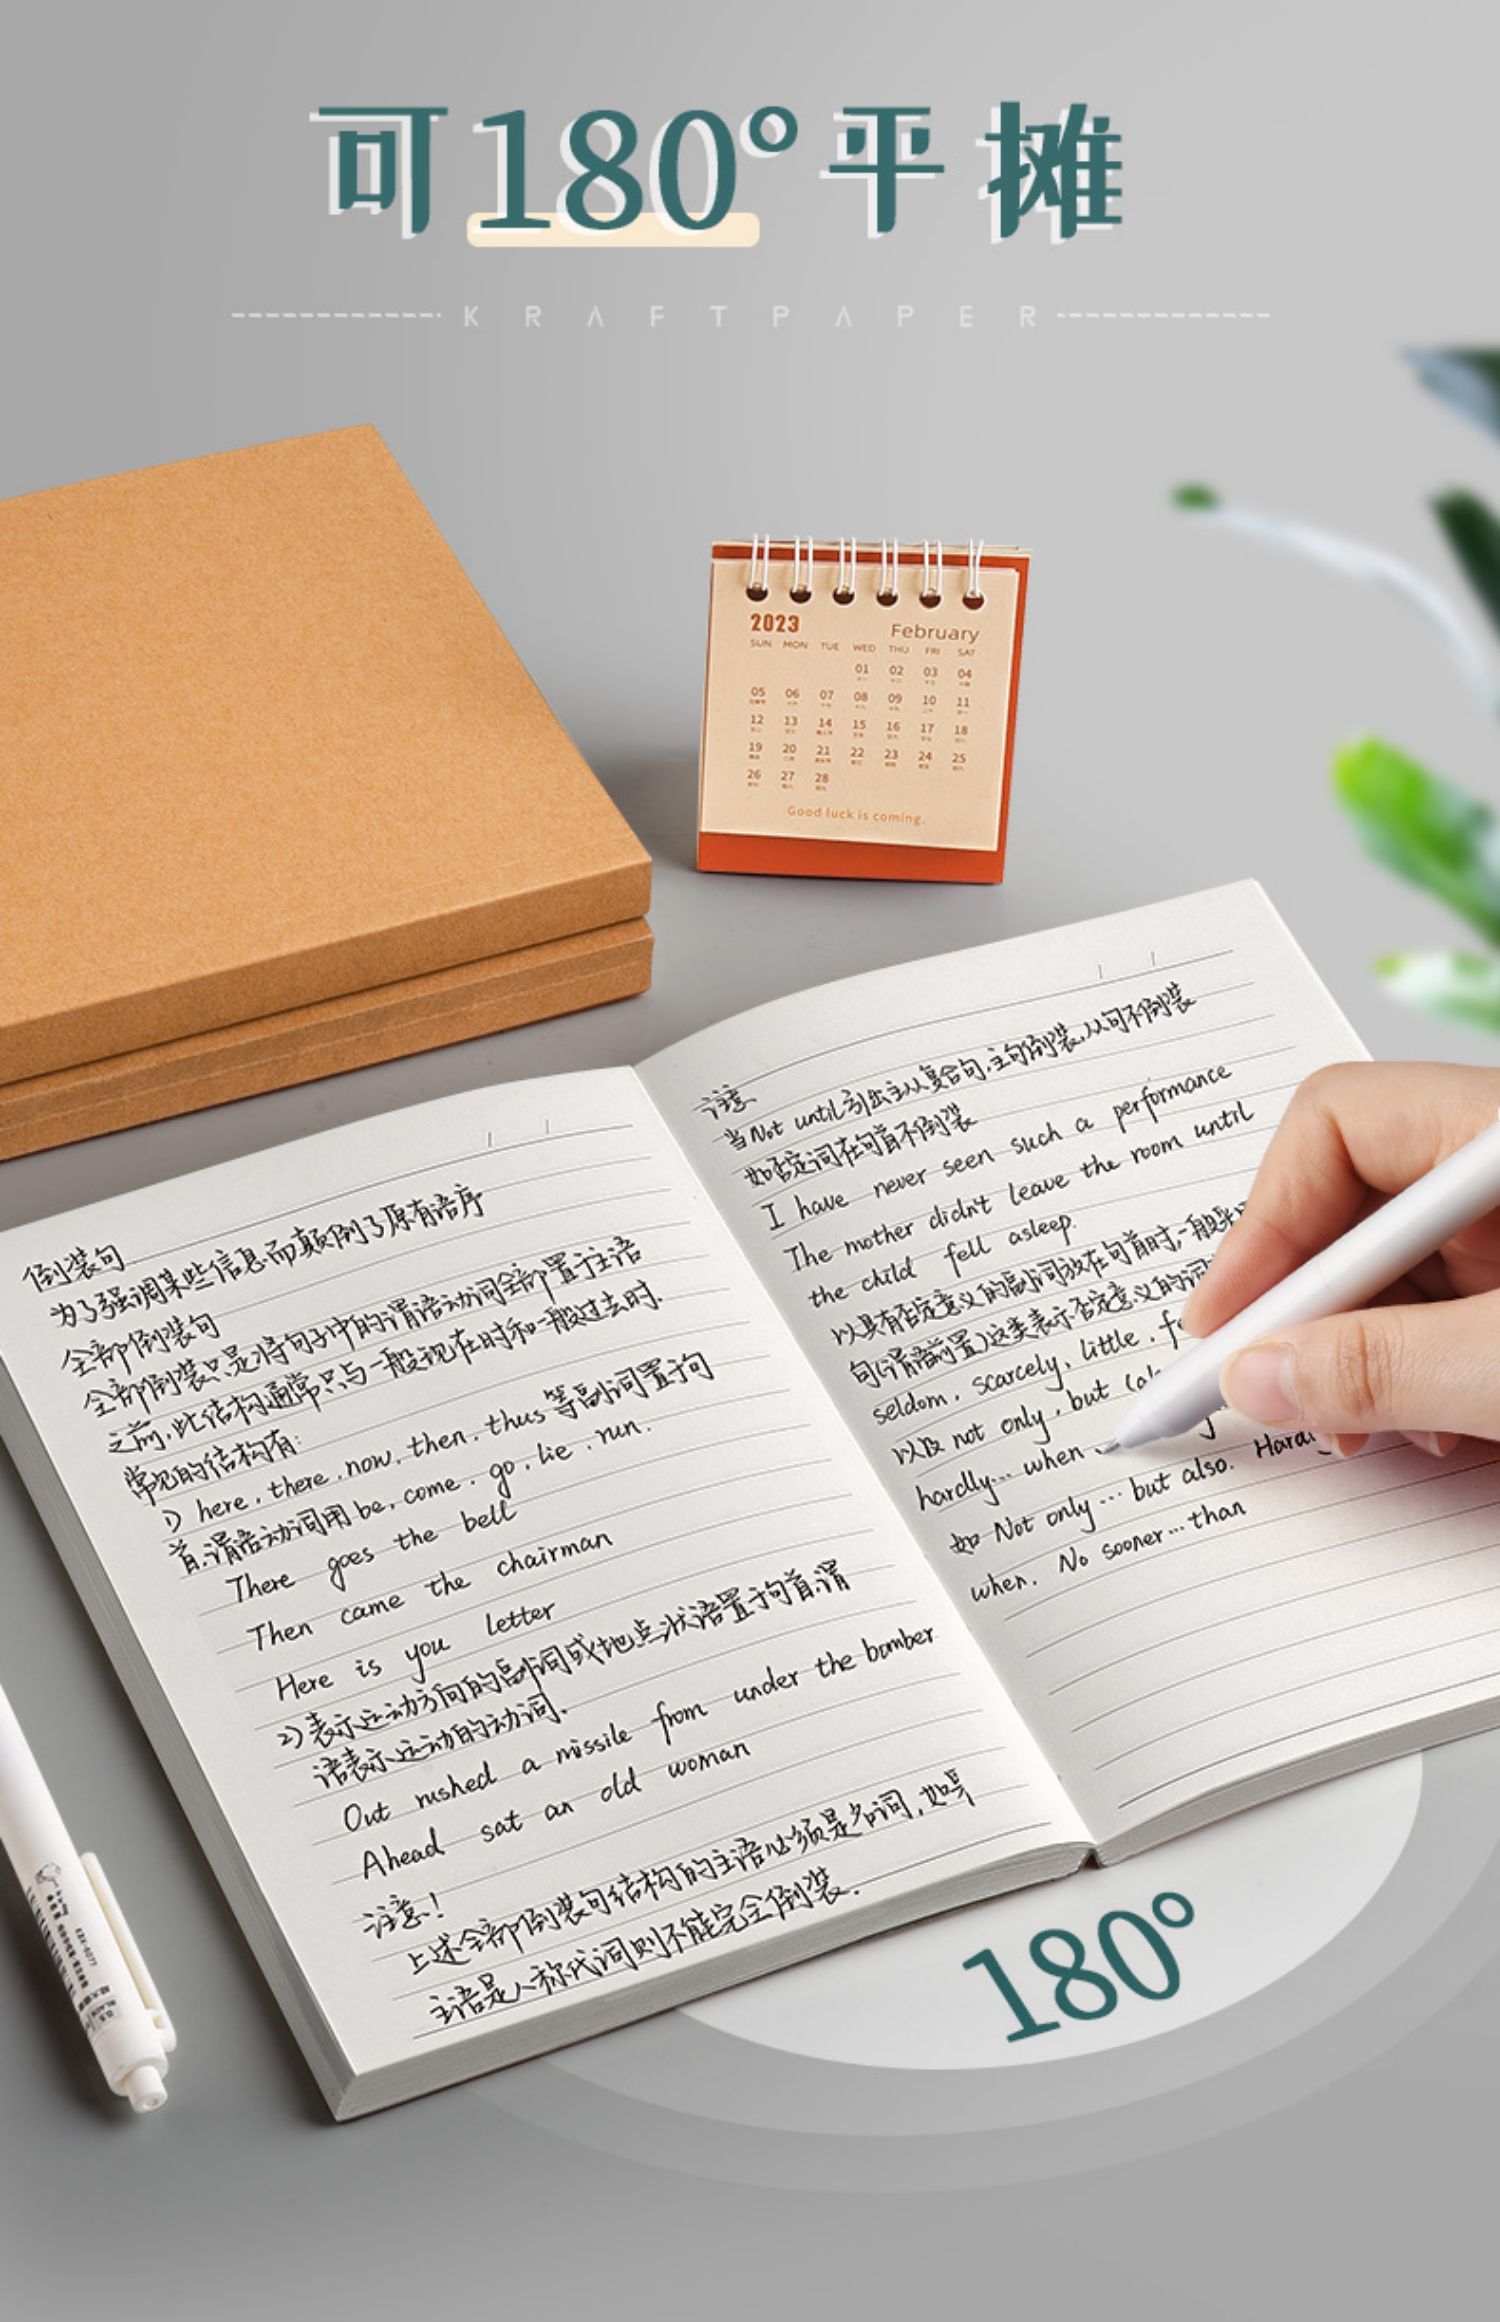 可180°平摊
KRAFTPAPER
2023 February
SUN MON TUE WED THU FRI SAT
01 02 03 04
05 06 07 08 09 10 11
12 13 14 15 16 17 18
19 20 21 22 23 24 25
26 27 28
Good luck is coming.
倒装句
为了强调某些信息而颠倒了原有语序
全部倒装句
全部倒装只是将句子中的谓语动词全部置于主语
之前，此结构通常只与一般现在时和一般过去时.
常见的结构有:
1) here, there, now, then, thus等副词置于句
首.谓语动词用be, come, go, lie, run.
There goes the bell
Then came the chairman
Here is you letter
2)表示运动方向的副词或地点状语置于句首.谓
语表示运动的动词.
Out rushed a missile from under the bomber
Ahead sat an old woman
注意!
上述全部倒装句结构的主语必须是名词，如果
主语是人称代词则不能完全倒装.
注意
当Not until引出主从复合句，主句倒装，从句不倒装
如否定词在句首不倒装
I have never seen such a performance
The mother didn't leave the room until
the child fell asleep.
以具有否定意义的副词放在句首时,一般
句(谓语前置)这类表示否定意义的词
seldom, scarcely, little,
以及not only, but
hardly... when
如 Not only... but also.
when. No sooner... than
180°